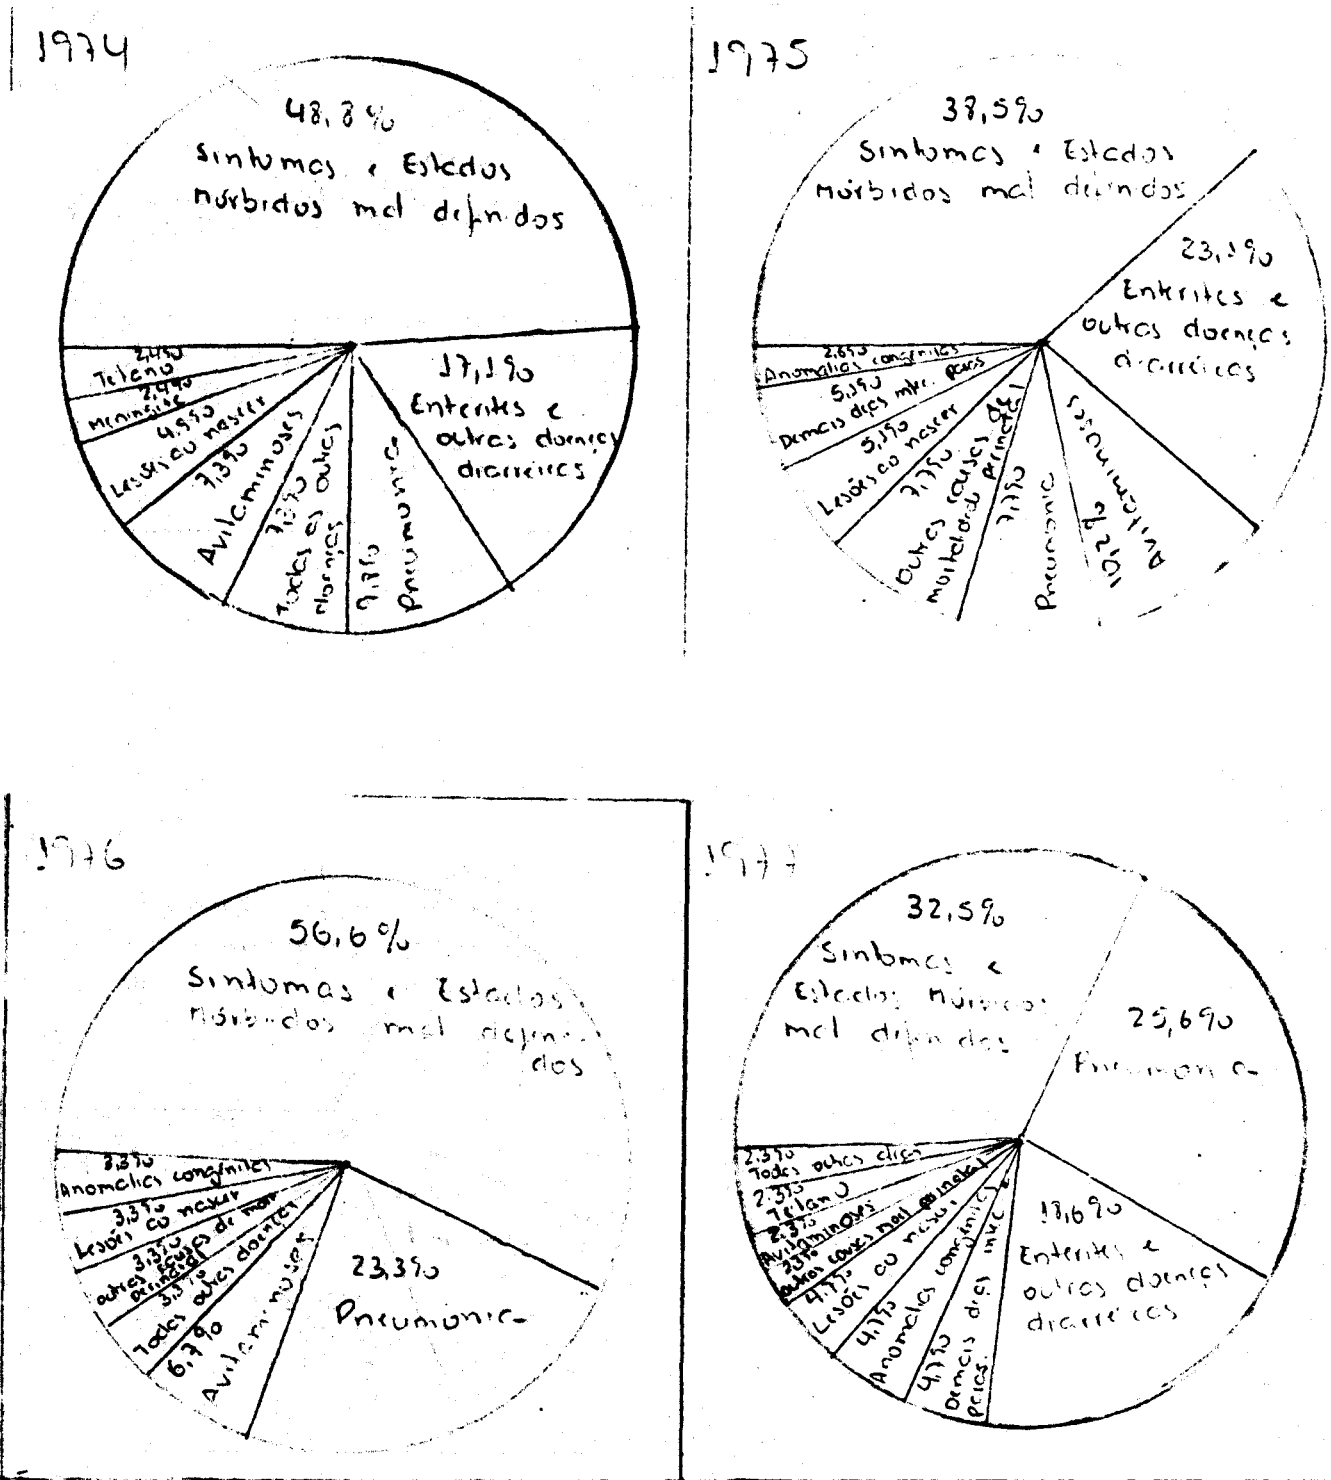 1974
48,8%
Sintomas e Estados
Mórbidos mal definidos
17,1%
Enterites e
outras doenças
diarréicas
9,8%
Pneumonia
7,3%
Todas as outras
doenças
7,3%
Avitaminoses
4,9%
Lesões ao nascer
2,4%
Meningite
2,4%
Tétano
1975
38,5%
Sintomas e Estados
Mórbidos mal definidos
23,1%
Enterites e
outras doenças
diarréicas
10,2%
Avitaminoses
7,7%
Pneumonia
7,7%
Outras causas de
mortalidade perinatal
5,1%
Lesões ao nascer
5,1%
Demais dças
2,6%
Anomalias congênitas
1976
56,6%
Sintomas e Estados
Mórbidos mal defini-
dos
23,3%
Pneumonia
6,7%
Avitaminoses
3,3%
Todas outras doenças
3,3%
outras causas de mort
perinatal
3,3%
Lesões ao nascer
3,3%
Anomalias congênitas
1977
32,5%
Sintomas e
Estados Mórbidos
mal definidos
25,6%
Pneumonia
18,6%
Enterites e
outras doenças
diarréicas
4,7%
Demais dças
paras.
4,7%
Anomalias congênitas
4,7%
Lesões ao nascer
2,3%
outras causas mort perinatal
2,3%
Avitaminoses
2,3%
Tétano
2,3%
Todas outras dças